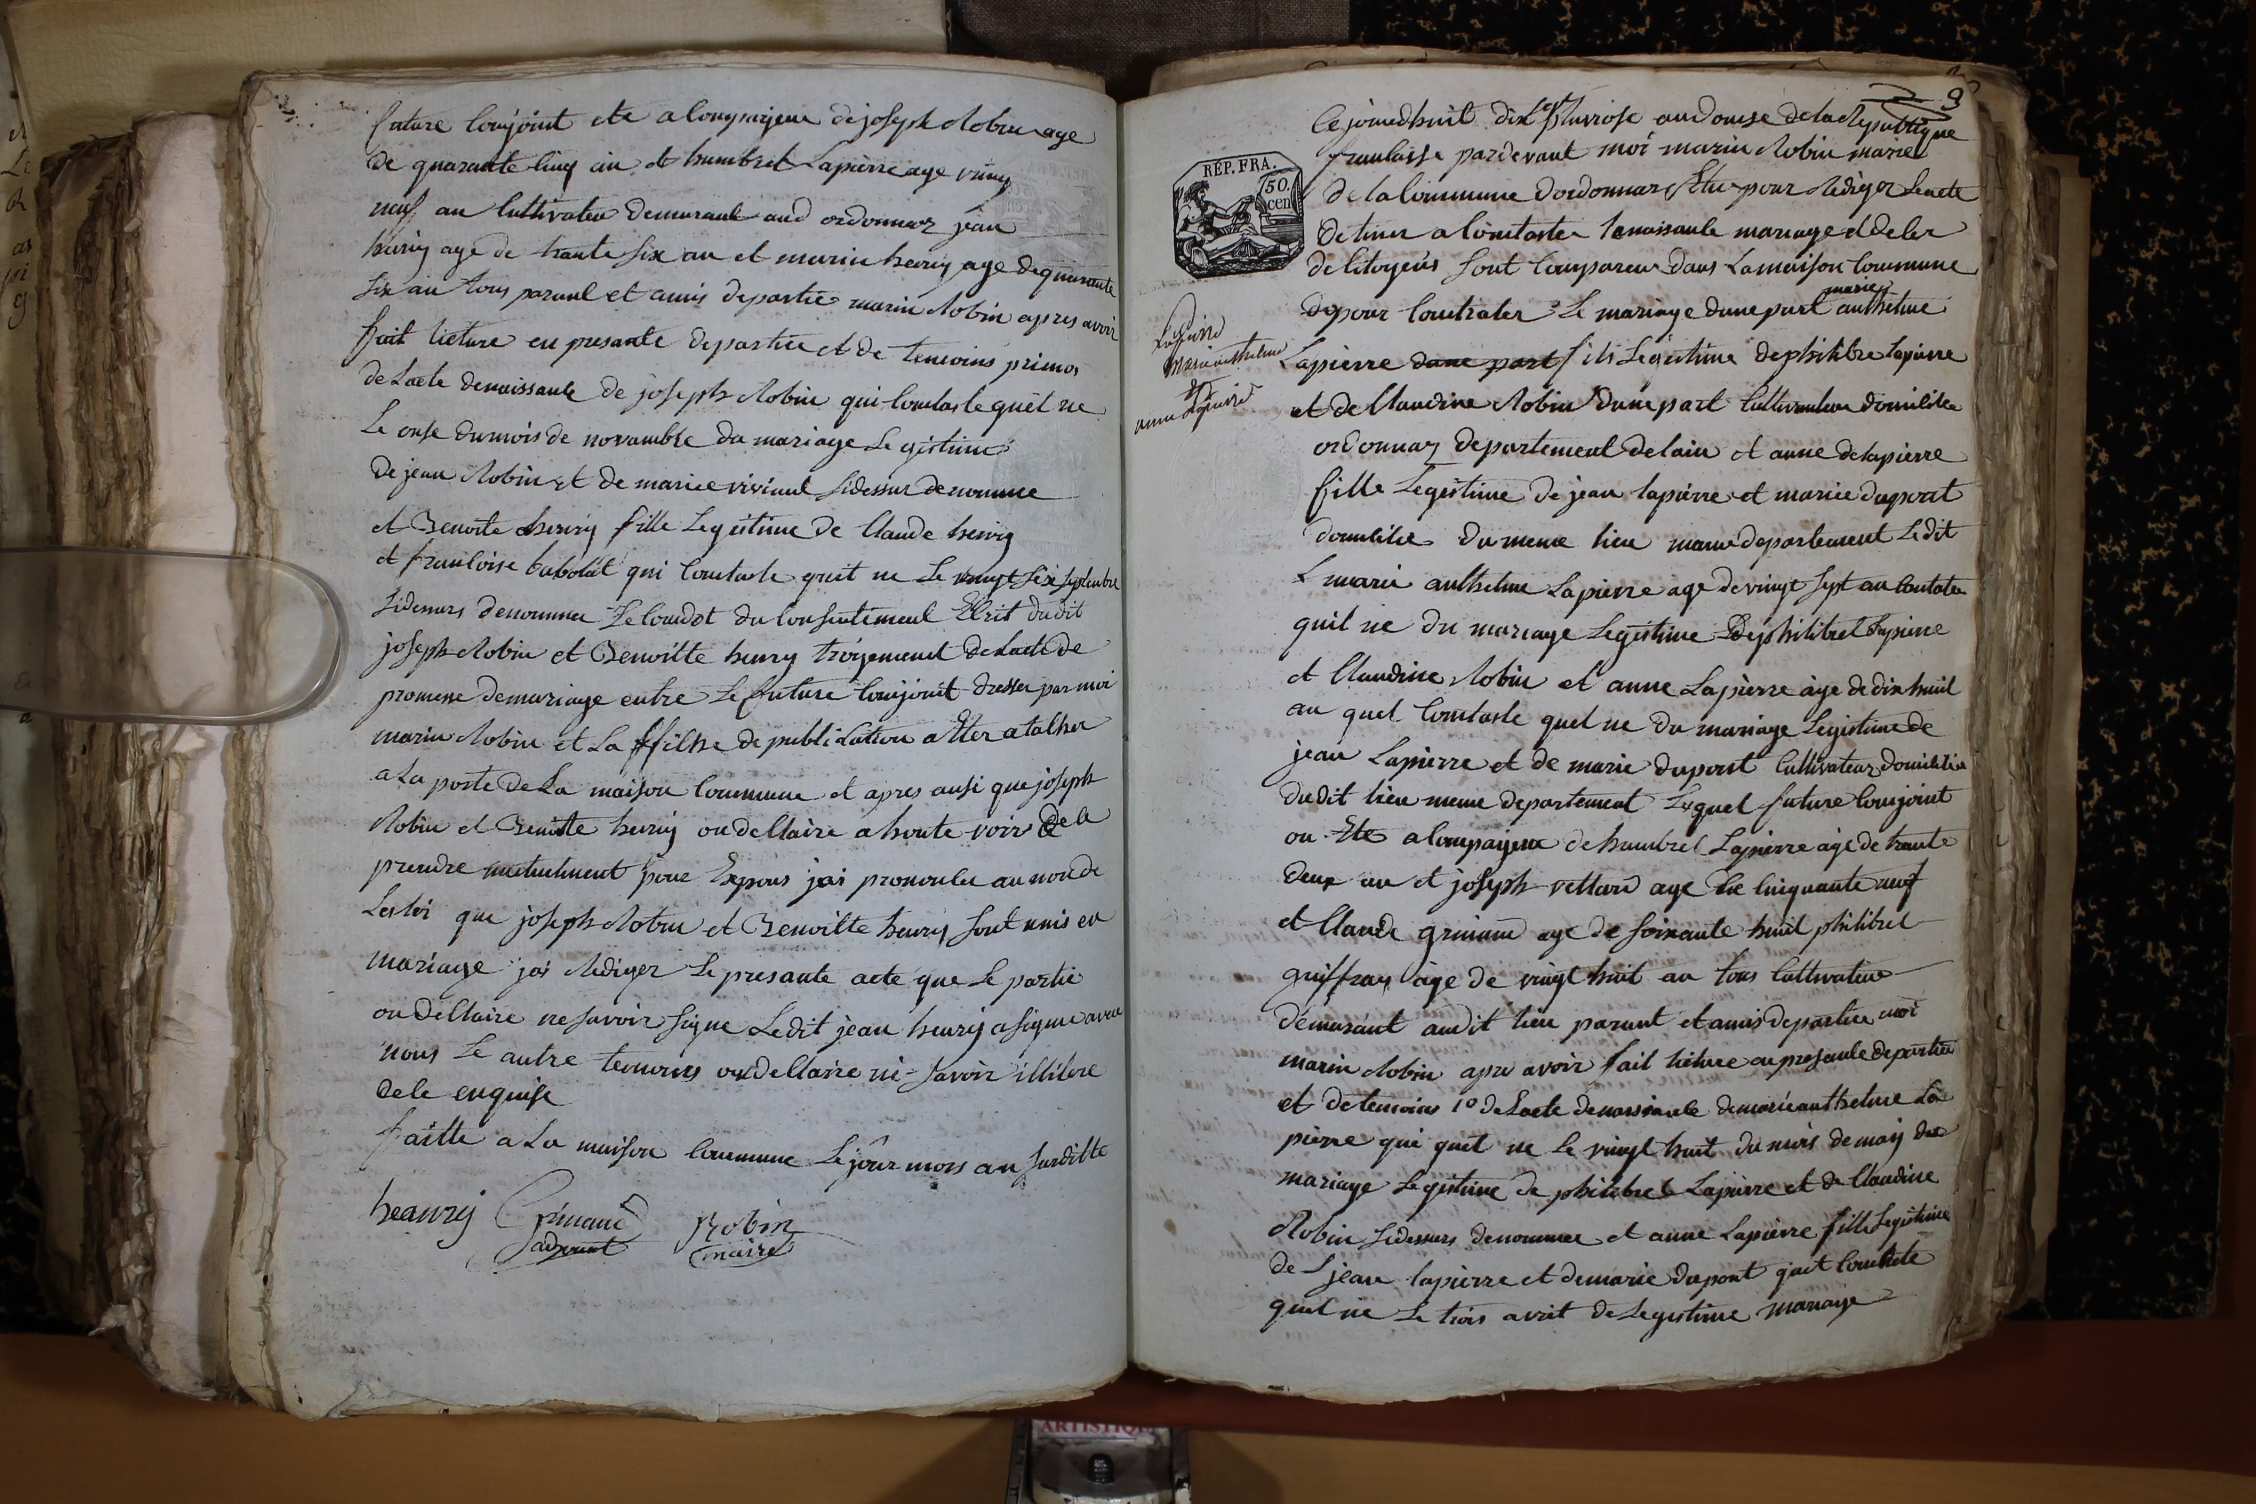 future Conjoint ete a Compagneu de joseph Robin age
de quarante Cinq an et humbret Lapierre age vingt
neuf an Cultivateu demurant aud ordonnaz jean
henry age de trante six an et marin henry age de quarante
six an tous parant et amis de partie marin Robin apres avoir
fait lecture en presante de partie et de temoins primos
de Lacte denaissante de joseph Robin qui Contaste quel ne
Le onse du mois de novambre du mariage Legistime
de jean Robin et de marie viviant sidessur denomme
et Benoite henry fille Legistime de Claude henry
et francoise babolat qui Contaste quit ne Le vingt six septembre
sidessurs denommee Secondot du Consentiment Ecrit dudit
joseph Robin et Benoitte henry troisement de Lacte de
promesse demariage entre Le future Conjoint dresser par moi
marin Robin et La ffiche de publication atter atacher
a La porte de La maison Commune et apres ausi que joseph
Robin et Benoitte henry on declaire a haute voix de le
prendre mutuelment pour Expous jai prononcer au non de
Les loi que joseph Robin et Benoitte henry sont unis en
mariage jai Rediger Le presante acte que Le partie
on declaire ne savoir signe Ledit jean henry a signe avec
nous Le autre temoins on declaire ne savoir illitere
dele enquise
faitte a La maison Commune Le jour mois an surditte
heanry Grinand Robin
adjoint maire
9
Cejourdhuit dix sept pluviose an douse de la Republique
francaisse pardevant moi marin Robin maire
RÉP. FRA.
50.
cen
de la Commune dordonnaz Elu pour Rediger Lacte
de tiner a Contaster La naissance mariage et deler
de Citoyens sont Comparu dans La maison Commune
Depour Contrater Le mariage dune part marie anthelme
Lapierre
marie anthelme
et
anne Lapierre
Lapierre dune part fils Legistime de philibre lapierre
et de Claudine Robin dune part Cultivateu domicilie
ordonnaz departement de lain et anne delapierre
fille Legistime de jean lapierre et marie dupont
domicilie du meme lieu meme departement Ledit
marie anthelme Lapierre age de vingt sept an Contate
quil ne du mariage Legistime De philibret Lapierre
et Claudine Robin et anne Lapierre age de dix huit
an quel Contaste quel ne du mariage Legistime de
jean Lapierre et de marie dupont Cultivateur domicilie
dudit lieu meme departement Lequel future Conjoint
on Ete a Compagneu de humbret Lapierre age de trante
deux an et joseph vettard age de Cinquante neuf
et Claude grinand age de soixante huit philibret
guiffray age de vingt huit an tous Cultivateur
demurant audit lieu parant et amis de partie moi
marin Robin apre avoir fait lecture en presante de partie
et de temoins 1° de Lacte denaissante de marie anthelme La
pierre qui quel ne Le vingt huit du mois de may du
mariage Legistime de philibret Lapierre et de Claudine
Robin sidessurs denommee et anne Lapierre fille Legistime
de jean lapierre et de marie dupont quit Contaste
quel ne Le trois avrit de Legistime mariage